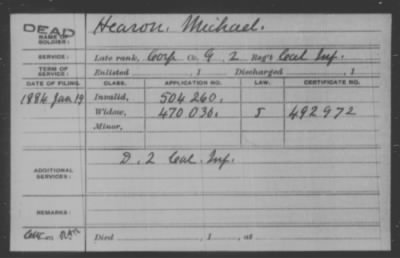 DEAD
NAME OF SOLDIER: Hearon, Michael.
SERVICE: Late rank, Corp Co. G, 2 Reg't Cal Inf.
TERM OF SERVICE: Enlisted , 1 Discharged , 1
DATE OF FILING. CLASS. APPLICATION NO. LAW. CERTIFICATE NO.
1884 Jan 19 Invalid, 504260.
Widow, 470036. S 492972
Minor,
ADDITIONAL SERVICES: D. 2 Cal. Inf.
REMARKS:
Died , 1 , at